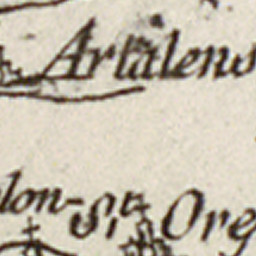 Artalens
lon-St. Ore